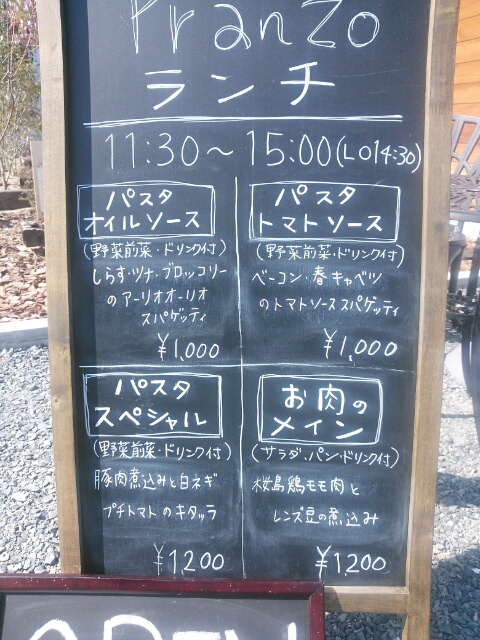 Pranzo
ランチ
11:30～15:00(LO14:30)
パスタ
オイルソース
(野菜前菜・ドリンク付)
しらす・ツナ・ブロッコリー
のアーリオオーリオ
スパゲッティ
¥1,000
パスタ
トマトソース
(野菜前菜・ドリンク付)
ベーコン・春キャベツ
のトマトソーススパゲッティ
¥1,000
パスタ
スペシャル
(野菜前菜・ドリンク付)
豚肉煮込みと白ネギ
プチトマトのキタッラ
¥1,200
お肉の
メイン
(サラダ・パン・ドリンク付)
桜島鶏モモ肉と
レンズ豆の煮込み
¥1,200
OPEN